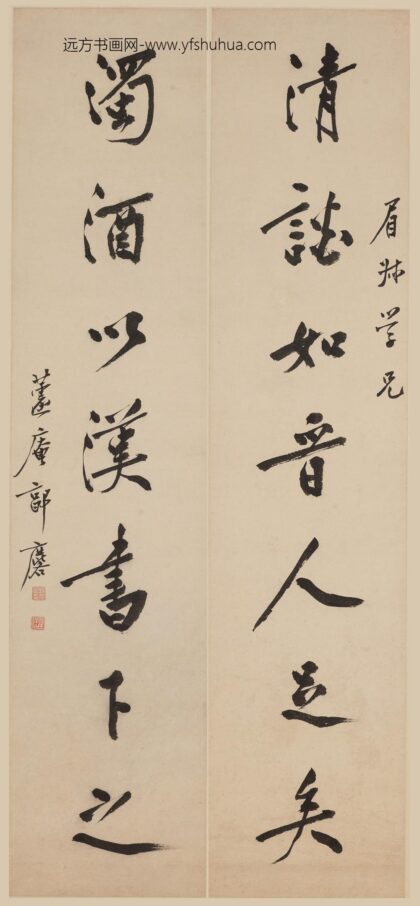 远方书画网-www.yfshuhua.com
眉妹学兄
清談如晉人足矣
濁酒以漢書下之
蘧庵郭麐